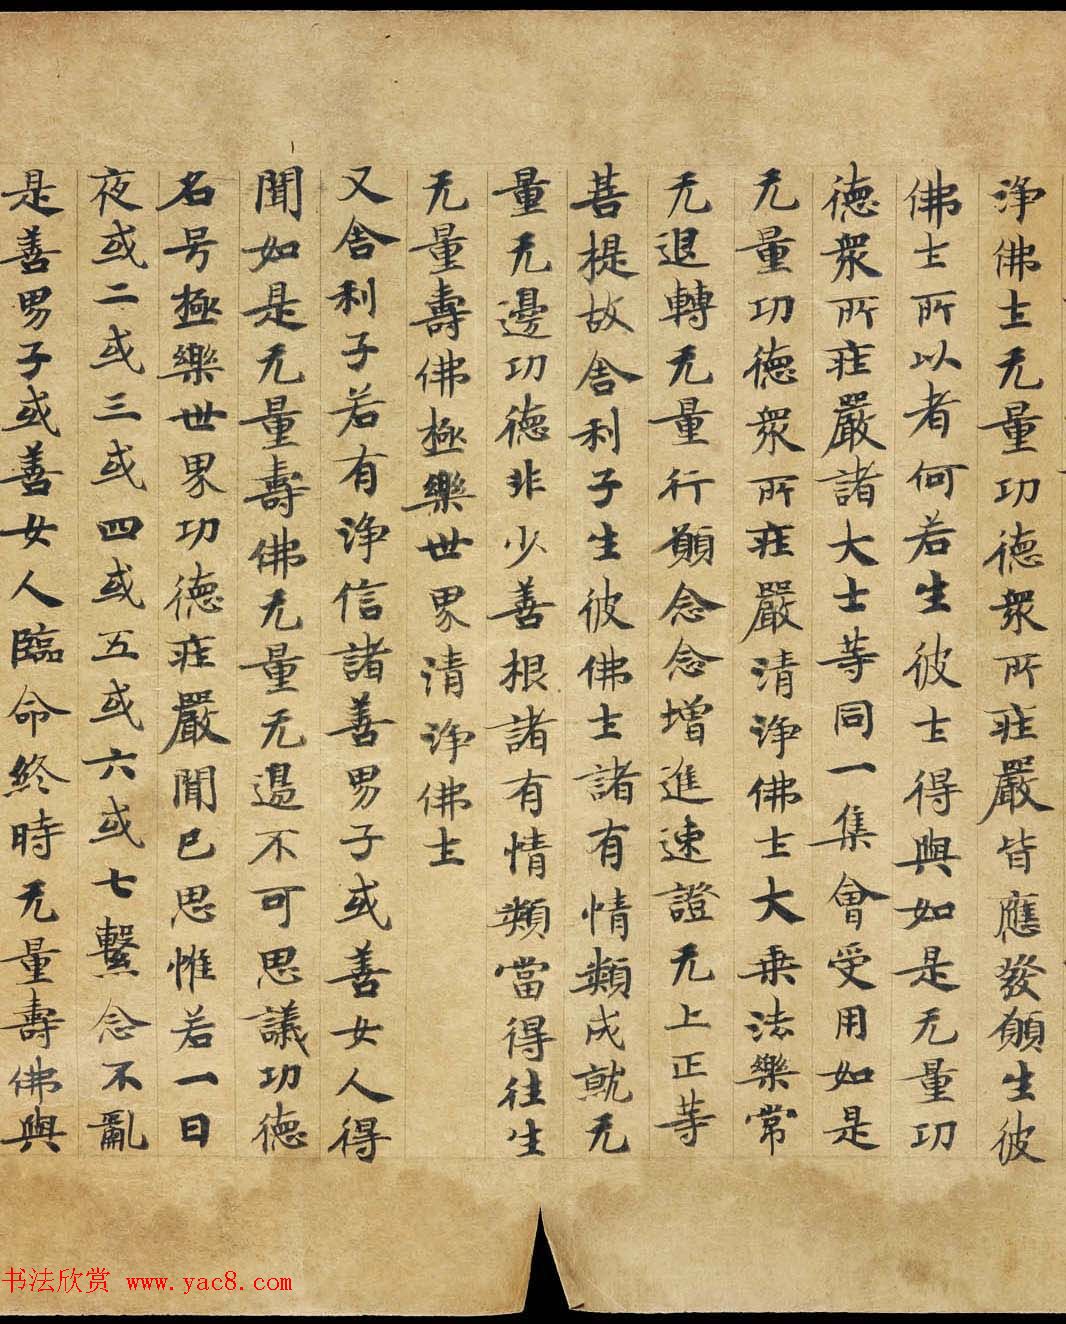 淨佛土无量功德眾所莊嚴皆應發願生彼
佛土所以者何若生彼土得與如是无量功
德眾所莊嚴諸大士等同一集會受用如是
无量功德眾所莊嚴清淨佛土大乘法樂常
无退轉无量行願念念增進速證无上正等
菩提故舍利子生彼佛土諸有情類成就无
量无邊功德非少善根諸有情類當得往生
无量壽佛極樂世界清淨佛土
又舍利子若有淨信諸善男子或善女人得
聞如是无量壽佛无量无邊不可思議功德
名号極樂世界功德莊嚴聞已思惟若一日
夜或二或三或四或五或六或七繫念不亂
是善男子或善女人臨命終時无量壽佛與
书法欣赏 www.yac8.com